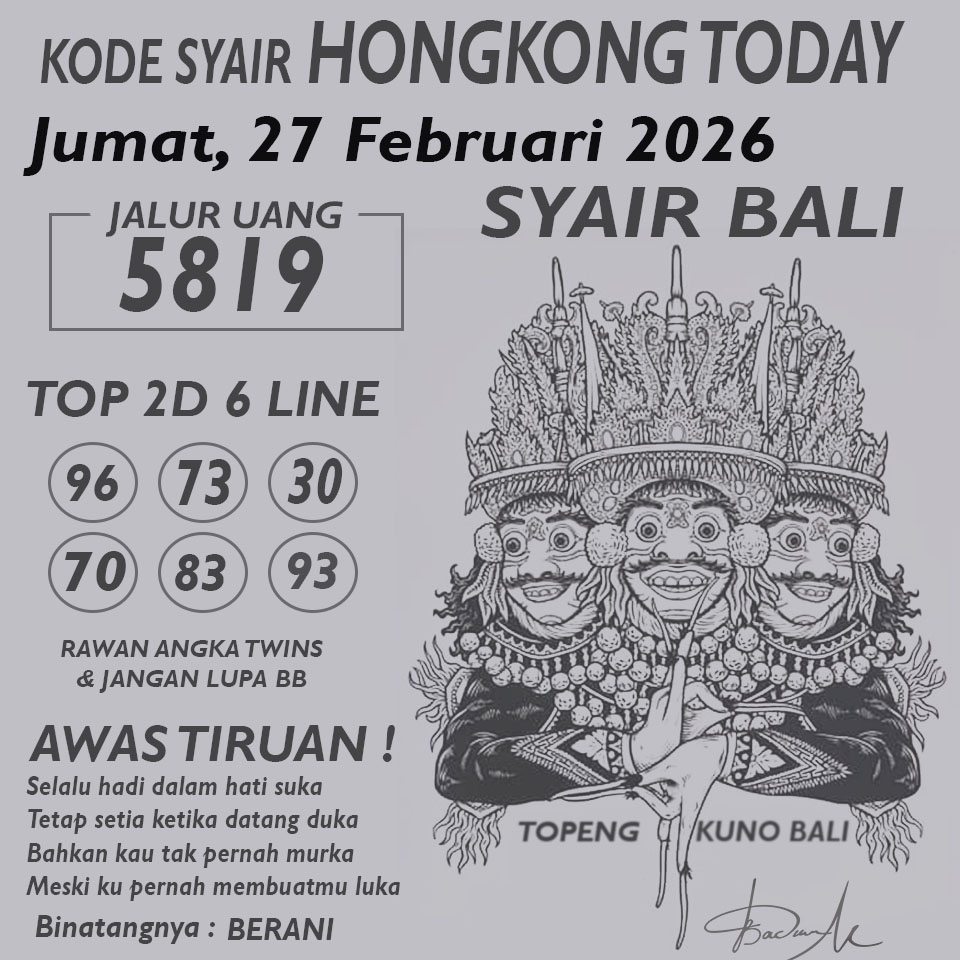 KODE SYAIR HONGKONG TODAY
Jumat, 27 Februari 2026
SYAIR BALI
JALUR UANG
5819
TOP 2D 6 LINE
96 73 30
70 83 93
RAWAN ANGKA TWINS
& JANGAN LUPA BB
AWAS TIRUAN !
Selalu hadi dalam hati suka
Tetap setia ketika datang duka
Bahkan kau tak pernah murka
Meski ku pernah membuatmu luka
Binatangnya : BERANI
TOPENG KUNO BALI